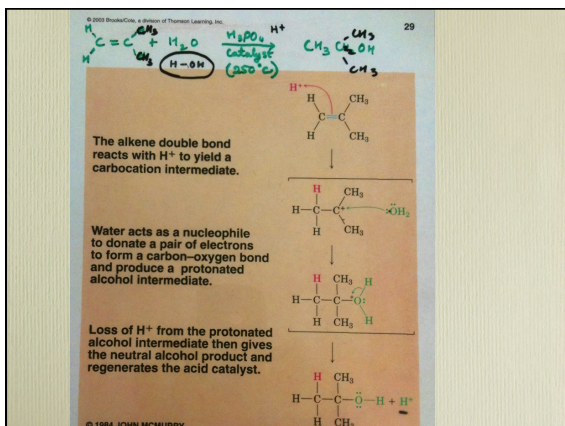 © 2003 Brooks/Cole, a division of Thomson Learning, Inc.
29
H CH3
C = C + H2O H3PO4 H+ CH3 C OH
H CH3 H-OH catalyst CH3
(250°C) CH3
H+
H CH3
C=C
H CH3
The alkene double bond
reacts with H+ to yield a
carbocation intermediate.
H CH3
H—C—C+ :ÖH2
H CH3
Water acts as a nucleophile
to donate a pair of electrons
to form a carbon–oxygen bond
and produce a protonated
alcohol intermediate.
H CH3 H
H—C—C—O:
H CH3 H
Loss of H+ from the protonated
alcohol intermediate then gives
the neutral alcohol product and
regenerates the acid catalyst.
H CH3
H—C—C—Ö—H + H+
H CH3
© 1984 JOHN MCMURRY